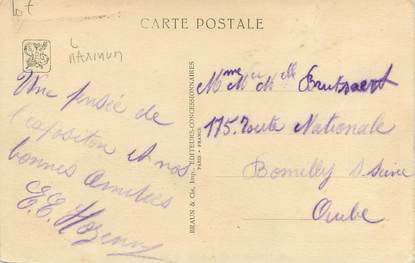 lot
L
MAXIMUM
CARTE POSTALE
Une pensée de
l'exposition et nos
bonnes amitiés
BRAUN & Cie, Imp., EDITEURS-CONCESSIONNAIRES
PARIS - FRANCE
Mme Mr Mlle
175. Route Nationale
Romilly S. Seine
Aube